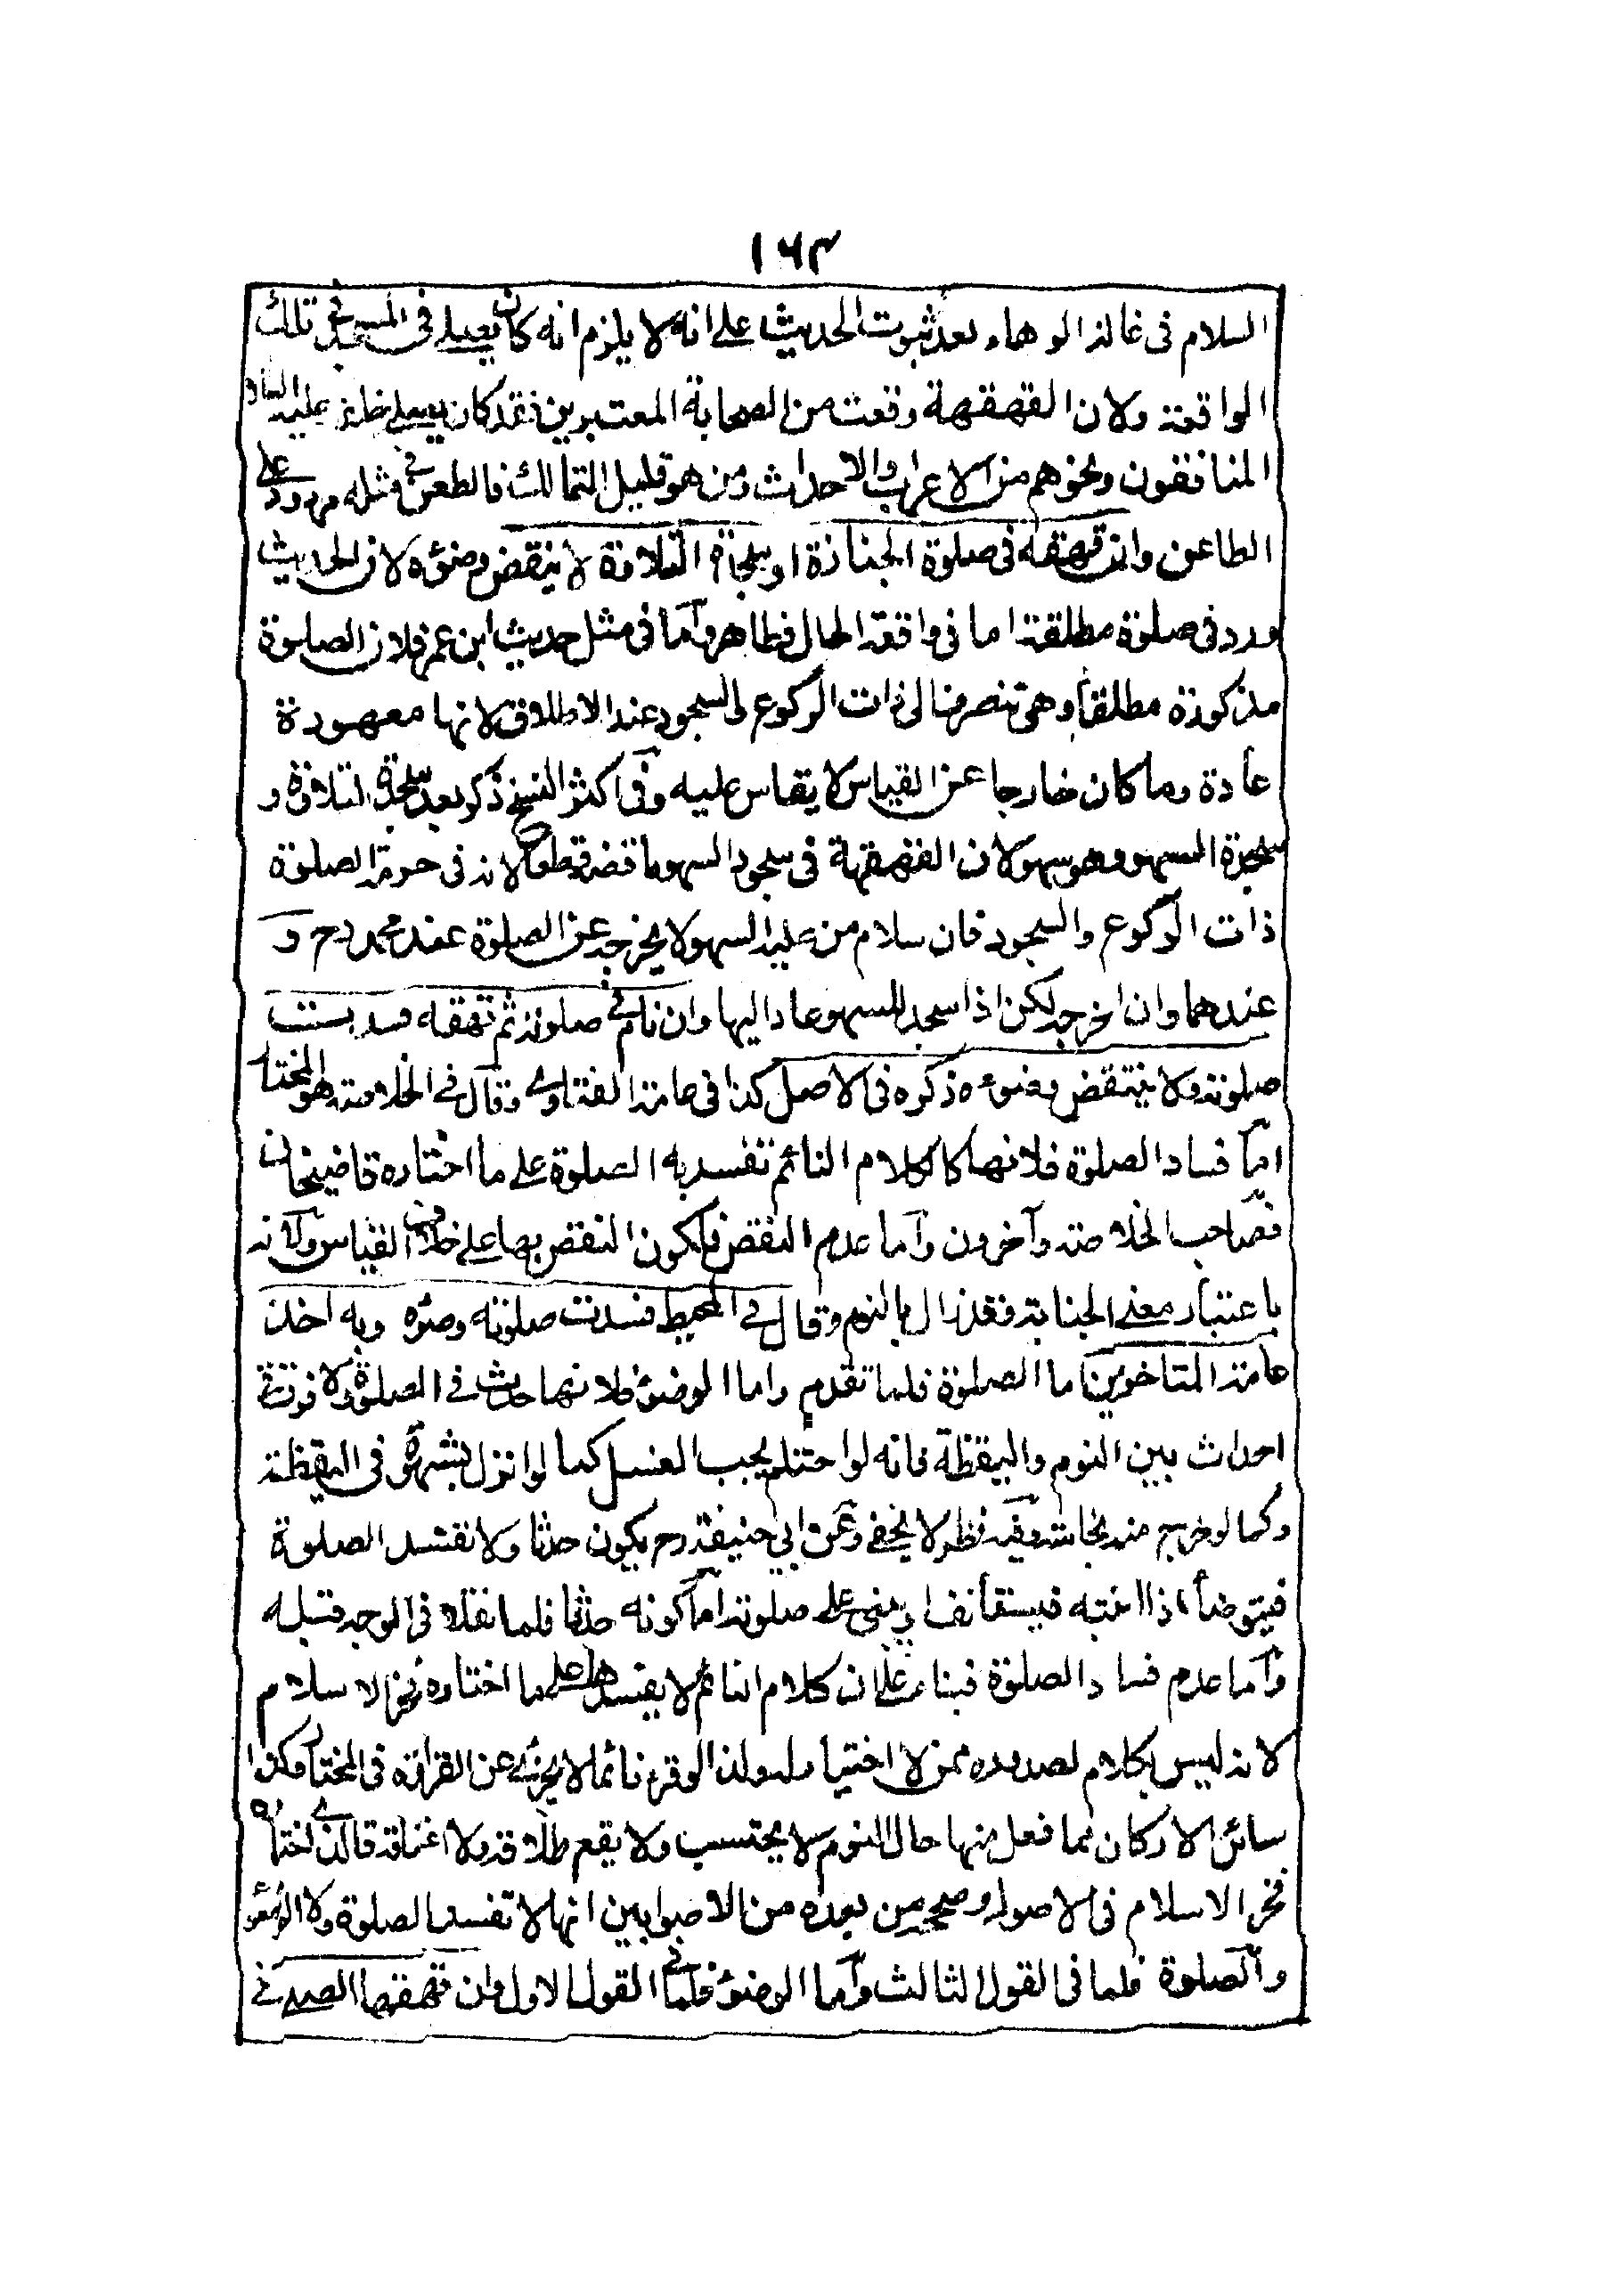 ١٦٣
السلام فى غالز الوهاء بعد ثبوت الحديث على انه لا يلزم انه كان يصلى فى المسجد تلك
الواقعة ولان القهقهة وقعت من الصحابة المعتبرين فقد كان يصلى خلفه عليه السلام
المنافقون ونحوهم من الاعراب والاحداث ومن هو قليل التمالك فالطعن فى مثله مردود على
الطاعن وان قهقه فى صلوة الجنازة او سجدة التلاوة لا ينقض وضؤه لان الحديث
ورد فى صلوة مطلقة اما فى واقعة الحال فظاهر وأما فى مثل حديث ابن عمر فلان الصلوة
مذكورة مطلقا وهى تنصرف الى ذات الركوع والسجود عند الاطلاق لانها معهودة
عادة وما كان خارجا عن القياس لا يقاس عليه وفى اكثر النسخ ذكر بعد سجدة التلاوة و
سجدة السهو وهو سهو لان القهقهة فى سجود السهو ناقضة قطعا لانه فى حرمة الصلوة
ذات الركوع والسجود فان سلام من عليه السهو لا يخرجه عن الصلوة عند محمد رح و
عندهما وان اخرجه لكن اذا سجد للسهو عاد اليها وان نام فى صلوته ثم قهقه فسدت
صلوته ولا ينتقض وضوءه ذكره فى الاصل كذا فى عامة الفتاوى وقال فى الخلاصة هو المختار
اما فساد الصلوة فلانها كالكلام النائم تفسد به الصلوة على ما اختاره قاضيخان
فصاحب الخلاصة وآخرون وأما عدم النقض فلكون النقض بها على خلاف القياس ولانه
باعتبار معنى الجناية فقد زال بالنوم وقال فى المحيط فسدت صلوته وضوه وبه اخذ
عامة المتاخرين اما الصلوة فلما تقدم واما الوضوء فلانها حدث فى الصلوة ولا فرق فى
احداث بين النوم واليقظة فانه لو احتلم يجب الغسل كما لو انزل بشهوة فى اليقظة
وكما لو خرج منه نجاسة وفيه نظر لا يخفى وعن ابي حنيفة رح يكون حدثا ولا تفسد الصلوة
فيتوضأ اذا انتبه فيستقأنف او يمضى على صلوته اما كونه حدثا فلما نقله فى الوجه قبله
وأما عدم فساد الصلوة فبناء على ان كلام النائم لا يفسدها على ما اختاره فخر الاسلام
لانه ليس بكلام لصدوره ممن لا اختيار له ولذا لو قرء نائما لا يجزئه عن القراءة فى المختار وكذا
سائر الاركان فما فعل منها حال النوم لا يحتسب ولا يقع طلاقه ولا اعتاقه قال الذى اختاره
فخر الاسلام فى الاصول وصححه من بعده من الاصوليين انها لا تفسد الصلوة ولا الوضوء
وأالصلوة فلما فى القول الثالث وأما الوضوء فلما فى القول الاول وان قهقهها الصبى فى